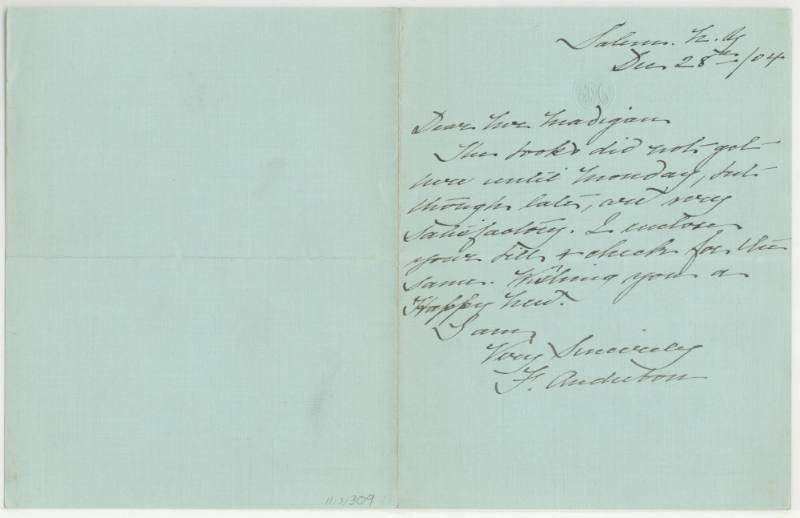 Salem. N. Y
Dec 28th/04
Dear Mr Madigan
The books did not get
here until Monday, but
though late, are very
satisfactory. I enclose
your bill & check for the
same. Wishing you a
Happy New.
I am
Very Sincerely
F. Audubon
309